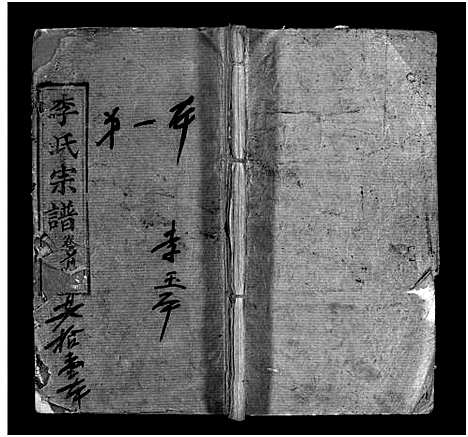 李氏宗譜 卷首
共拾壹本
第一本
李玉平